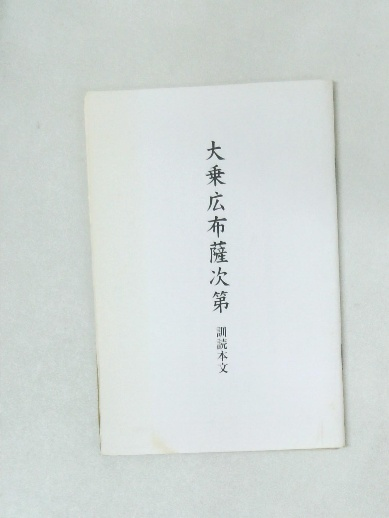 大乗広布薩次第
訓読本文